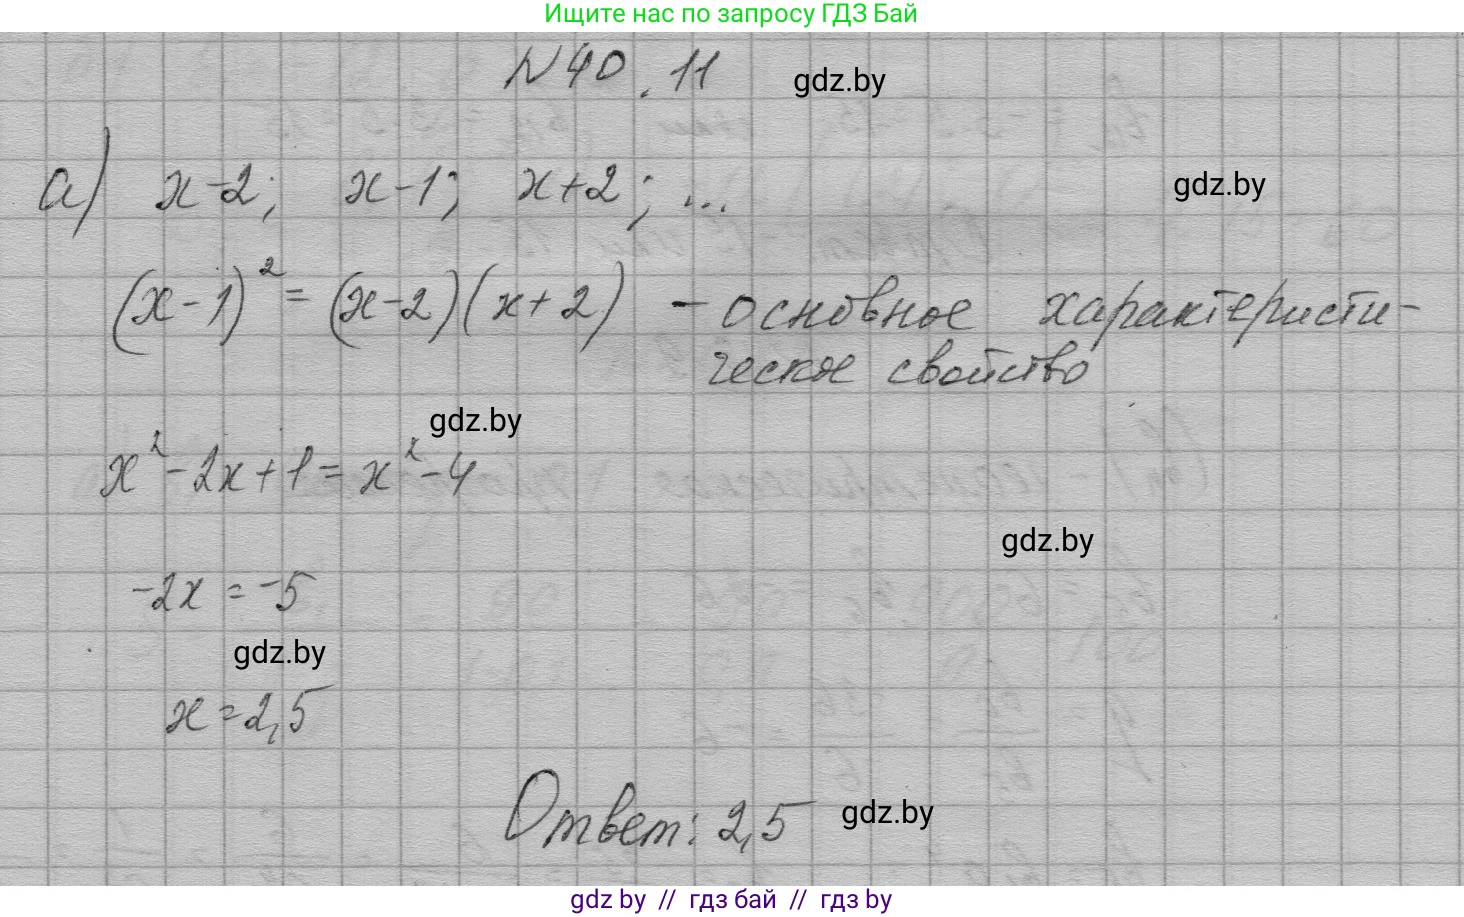 Ищите нас по запросу ГДЗ Бай
N 40.11
gdz.by
а) x-2; x-1; x+2; ...
gdz.by
(x-1)² = (x-2)(x+2) - основное характеристи-
ческое свойство
gdz.by
x²-2x+1=x²-4
gdz.by
-2x=-5
gdz.by
x=2,5
Ответ: 2,5
gdz.by
gdz by // гдз бай // гдз by